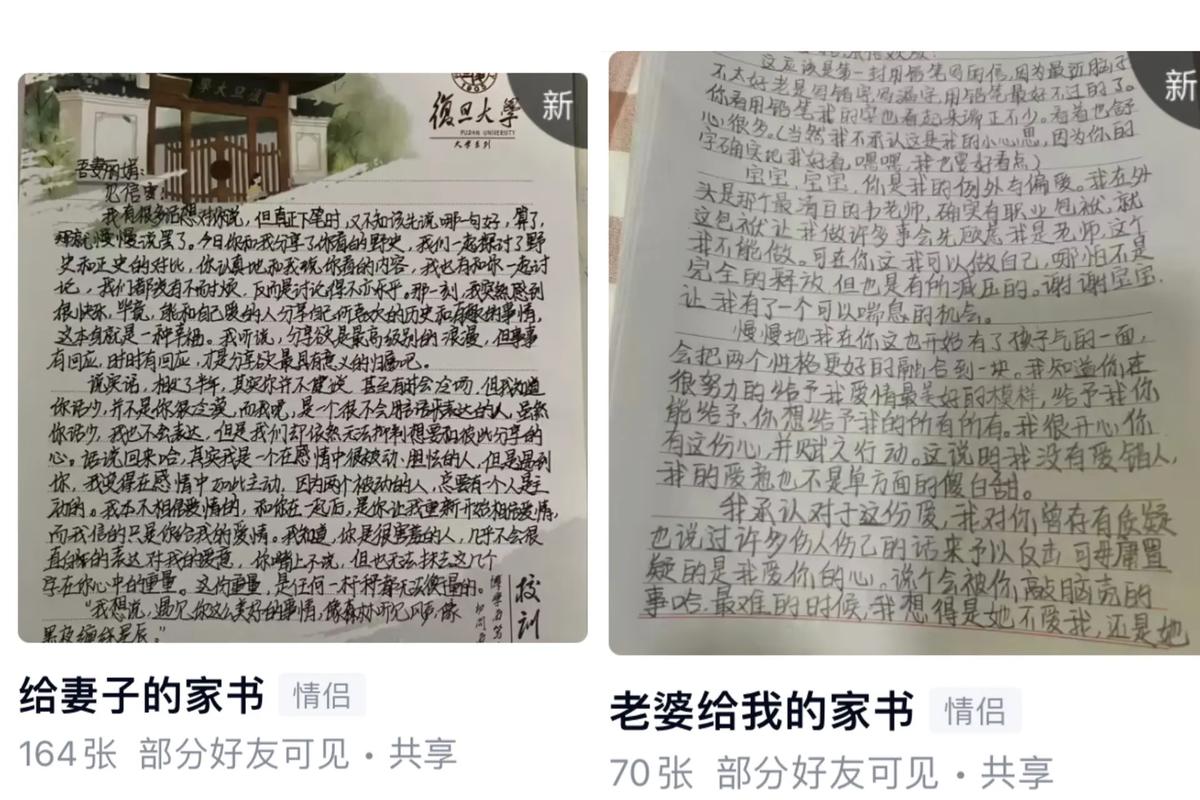 學大旦復
1905
復旦大學
FUDAN UNIVERSITY
大学系列
新
吾妻丽娟:
见信安!
我有很多话想对你说，但真正下笔时，又不知该先说哪一句好，算了，
那就慢慢说罢了。今日你和我分享了你看的野史，我们一起探讨了野
史和正史的对比，你认真地和我说你看的内容，我也有和你一起讨
论，我们都没有不耐烦，反而是讨论得不亦乐乎。那一刻，我突然感到
很快乐，毕竟，能和自己爱的人分享自己所喜欢的历史和有趣的事情，
这本身就是一种幸福。我听说，分享欲是最高级别的浪漫，但事事
有回应，时时有回应，才是分享欲最具有意义的归属吧。
说实话，相处了半年，其实你并不健谈，甚至有时会冷场，但我知道
你话少，并不是你很冷漠，而我呢，是一个很不会用话语表达的人，虽然
你话少，我也不会表达，但是我们却依然无法抑制想要和彼此分享的
心。话说回来哈，其实我是一个在感情中很被动、胆怯的人，但是遇到
你，我变得在感情中如此主动，因为两个被动的人，总要有一个人是主
动的。我本不相信爱情的，和你在一起后，是你让我重新开始相信爱情，
而我信的只是你给我的爱情。我知道，你是很害羞的人，几乎不会很
直白的表达对我的爱意，你嘴上不说，但也无法抹去这几个
字在你心中的重量。这份重量，是任何一杆秤都无法衡量的。
“我想说，遇见你这么美好的事情，像森林听见风声，像
黑夜缠绵星辰。”
校训
博学而笃
切问
给妻子的家书 情侣
164张 部分好友可见・共享
这应该是第一封用铅笔写的信，因为最近脑子
不太好老是写错字写漏字，用铅笔最好不过的了。
你看用铅笔我的字也看起来端正不少。看着也舒
心很多。(当然我不承认这是我的小心思，因为你的
字确实比我好看，嘿嘿，我也要好看点)
宝宝，宝宝，你是我的例外与偏爱。我在外
头是那个最清白的书老师，确实有职业包袱，就
这包袱让我做许多事会先顾忌我是老师，这个
我不能做。可在你这我可以做自己，哪怕不是
完全的释放，但也是有所减压的。谢谢宝宝，
让我有了一个可以喘息的机会。
慢慢地我在你这也开始有了孩子气的一面，
会把两个性格更好的融合到一块。我知道你在
很努力的给予我爱情最美好的模样，给予我你
能给予，你想给予我的所有所有。我很开心，你
有这份心，并赋之行动。这说明我没有爱错人，
我的爱意也不是单方面的傻白甜。
我承认对于这份爱，我对你曾存有质疑
也说过许多伤人伤己的话来予以反击，可毋庸置
疑的是我爱你的心。说个会被你敲脑壳的
事哈，最难的时候，我想得是她不爱我，还是她
新
老婆给我的家书 情侣
70张 部分好友可见・共享